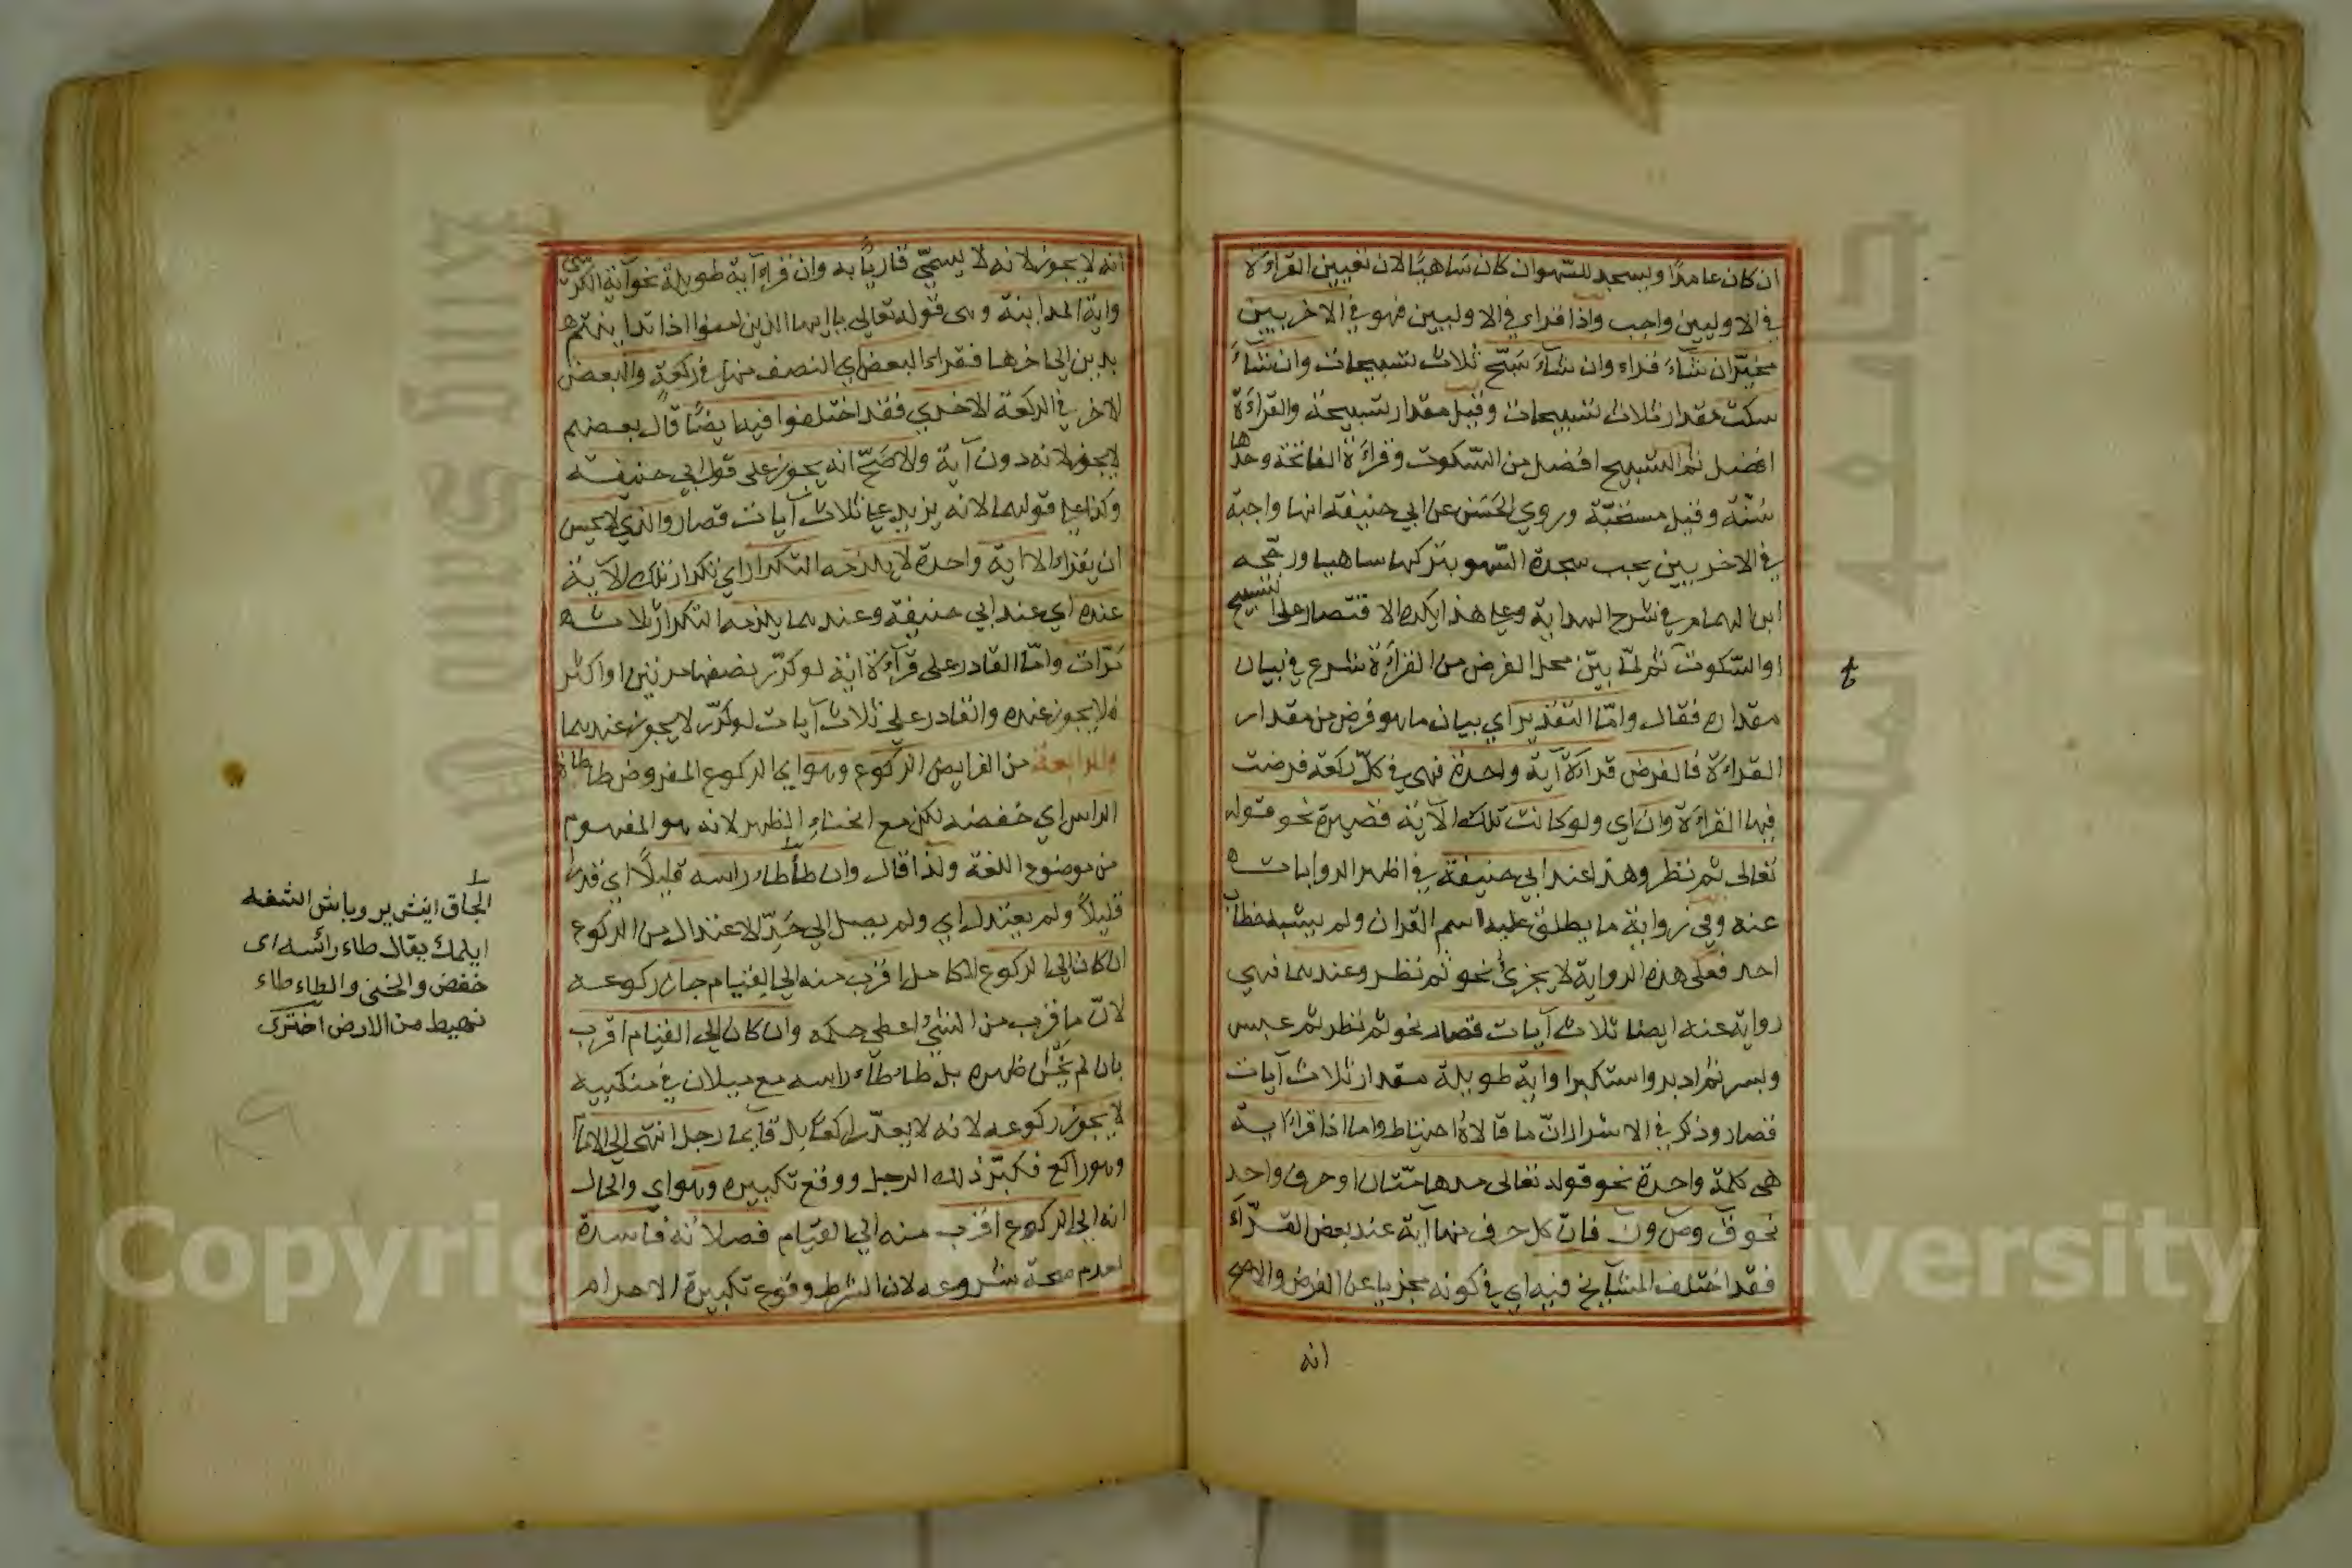 ان كان عامدًا ويسجد للسّهو ان كان سَاهيًا لان تعيين القراءة
في الاوليين واجب واذا قراء في الاوليين فهو في الاخريين
مخيّر ان شآءَ قراء وان شآءَ سَبّح ثلاث تسبيحات وان شآءَ
سكت مقدار ثلاث تسبيحات وقيل مقدار تسبيحة والقراءة
افضل ثم التسبيح افضل من السّكوت وقراءة الفاتحة وحدها
سُنّة وقيل مستحبّة وروي الحَسَن عن ابي حنيفة انها واجبة
في الاخريين يجب سجدة السّهو بتركها ساهيا ورجّحه
ابن الهمام في شرح الهداية وعلى هذا يكره الاقتصار على التسبيح
او السّكوت ثم لمّا بيّن محل الفرض من القراءة شرع في بيان
مقداره فقال وامّا التقدير اي بيان ما هو فرض من مقدار
القراءة فالفرض قراءة آية واحدة فهي في كلّ ركعة فرضت
فيها القراءة وان اي ولو كانت تلك الآية قصيرة نحو قوله
تعالى ثم نظر وهذا عند ابي حنيفة في اظهر الروايات
عنه وفي رواية ما يطلق عليه اسم القران ولم يشبه خطاب
احد فعلى هذه الرواية لا يجزئ نحو ثم نظر وعندهما فهي
رواية عنه ايضا ثلاث آيات قصار نحو ثم نظر ثم عبس
وبسر ثم ادبر واستكبر او اية طويلة مقدار ثلاث آيات
قصار وذكر في الاسرار انّ ما قالاهُ احتياط واما اذا قراءَ اية
هى كلمة واحدة نحو قوله تعالى مدهامّتان او حرف واحد
نحو ق وص ون فانّ كل حرف منها آية عند بعض القرّآء
فقد اختلف المشايخ فيه اي في كونه مجزيا عن الفرض والاصح
انه
انه لا يجوز لانه لا يسمّى قاريًا به وان قراء آية طويلة نحو آية الكرسي
واية المداينة وهى قوله تعالى يا ايها الذين امنوا اذا تداينتم
بدين الى اخرها فقراء البعض اي النصف منها في ركعة والبعض
الاخر في الركعة الاخري فقد اختلفوا فيه ايضًا قال بعضهم
لا يجوز لانه دون آية والاصَحّ انه يجوز على قول ابي حنيفة
وكذا على قولهما لانه يزيد على ثلاث آيات قصار والذي لا يحسن
ان يقراء الا اية واحدة لا يلزمه التكرار اي تكرار تلك الآية
عنده اي عند ابي حنيفة وعندهما يلزمه التكرار ثلاث
مَرّات وامّا القادر على قرآءة اية لو كرّر نصفها مرتين او اكثر
فلا يجوز عنده والقادر على ثلاث آيات لو كرّر لا يجوز عندهما
والرابعة من الفرايض الركوع وهو اي الركوع المفروض طاطاة
الراس اي خفضه لكن مع انحناء الظهر لانه هو المفهوم
من موضوع اللغة ولذا قال وان طأطاء راسه قليلًا اي قدرا
قليلًا ولم يعتدل اي ولم يصل الى حَدّ الاعتدال من الركوع
ان كان الى الركوع الكامل اقرب منه الى القيام جاز ركوعه
لانّ ما قرب من الشئ اعطي حكمه وان كان الى القيام اقرب
بان لم يَحْنِ ظهره بل طاطاء راسه مع ميلان في منكبيه
لا يجوز ركوعه لانه لا يعدّ راكعًا بل قايما رجل انتهى الى الامام
وهو راكع فكبّر ذلك الرجل ووقع تكبيره وهو اي والحال
انه الى الركوع اقرب منه الى القيام فصلاته فاسدة
لعدم صحة شروعه لان الشرط وقوع تكبيرة الاحرام
ايلمك يقال طاء رأسه اى
خفض والطاء طاء
من الارض